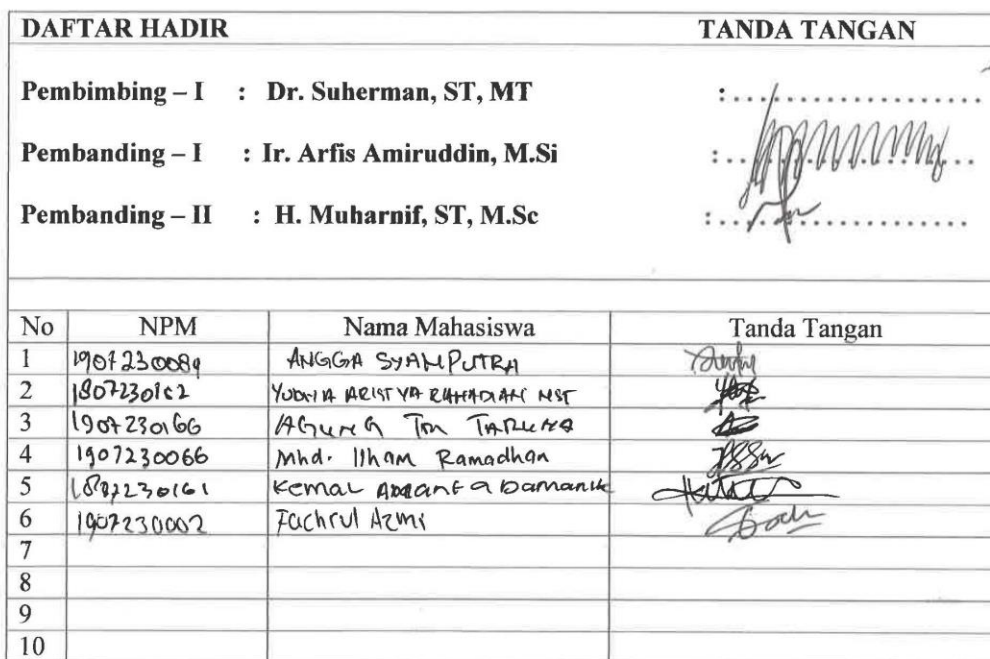 DAFTAR HADIR TANDA TANGAN
Pembimbing – I : Dr. Suherman, ST, MT : ....................
Pembanding – I : Ir. Arfis Amiruddin, M.Si : ....................
Pembanding – II : H. Muharnif, ST, M.Sc : ....................
No NPM Nama Mahasiswa Tanda Tangan
1 1907230089 ANGGA SYAHPUTRA
2 1807230152 YUDHA ARISTYA RAHADIAN NST
3 1907230166 AGUNG Tm TARUNA
4 1907230066 Mhd. Ilham Ramadhan
5 1807230161 Kemal Damanik
6 1907230002 Fachrul Azmi
7
8
9
10